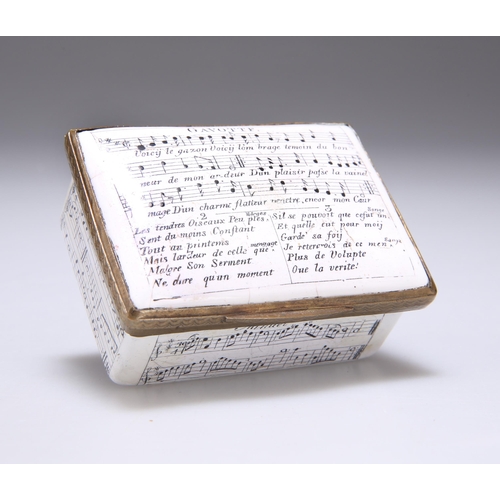 GAVOTTE
Voicij le gazon Voicij lom brage temoin du bon
neur de mon ardeur Dun plaisir passe la vaine
mage Dun charme flatteur rentre, encor mon Cœur
2
Les tendres Oiseaux Peu ples,
Sent du moins Constant
Tout au printems menage
Mais lardeur de celle que
Malgre Son Serment
Ne dure qu'un moment
3
Songe
Sil se pouvoit que cefut un
Et quelle eut pour moij
Gardé sa foij
Je reterois de ce men Songe
Plus de Volupte
Que la verité!